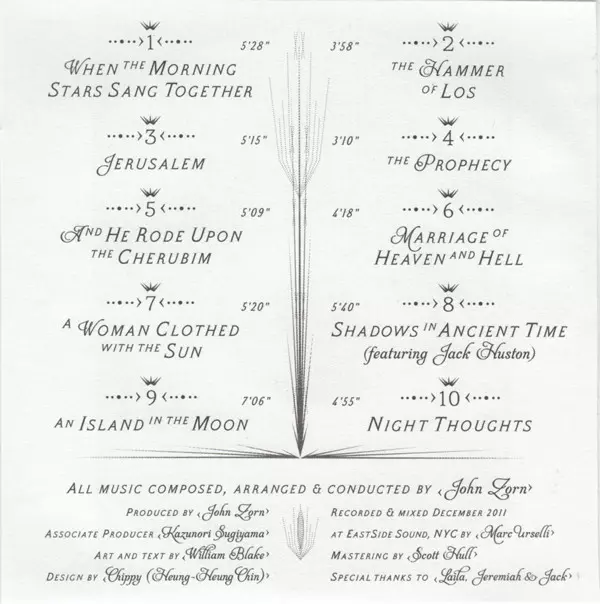 1
5'28"
When the Morning
Stars Sang Together
2
3'58"
the Hammer
of Los
3
5'15"
Jerusalem
4
3'10"
the Prophecy
5
5'09"
And He Rode Upon
the Cherubim
6
4'18"
Marriage of
Heaven and Hell
7
5'20"
A Woman Clothed
with the Sun
8
5'40"
Shadows in Ancient Time
(featuring Jack Huston)
9
7'06"
an Island in the Moon
10
4'55"
Night Thoughts
All music composed, arranged & conducted by John Zorn
Produced by John Zorn
Associate Producer Kazunori Sugiyama
Art and text by William Blake
Design by Chippy (Heung-Heung Chin)
Recorded & mixed December 2011
at EastSide Sound, NYC by Marc Urselli
Mastering by Scott Hull
Special thanks to Laila, Jeremiah & Jack